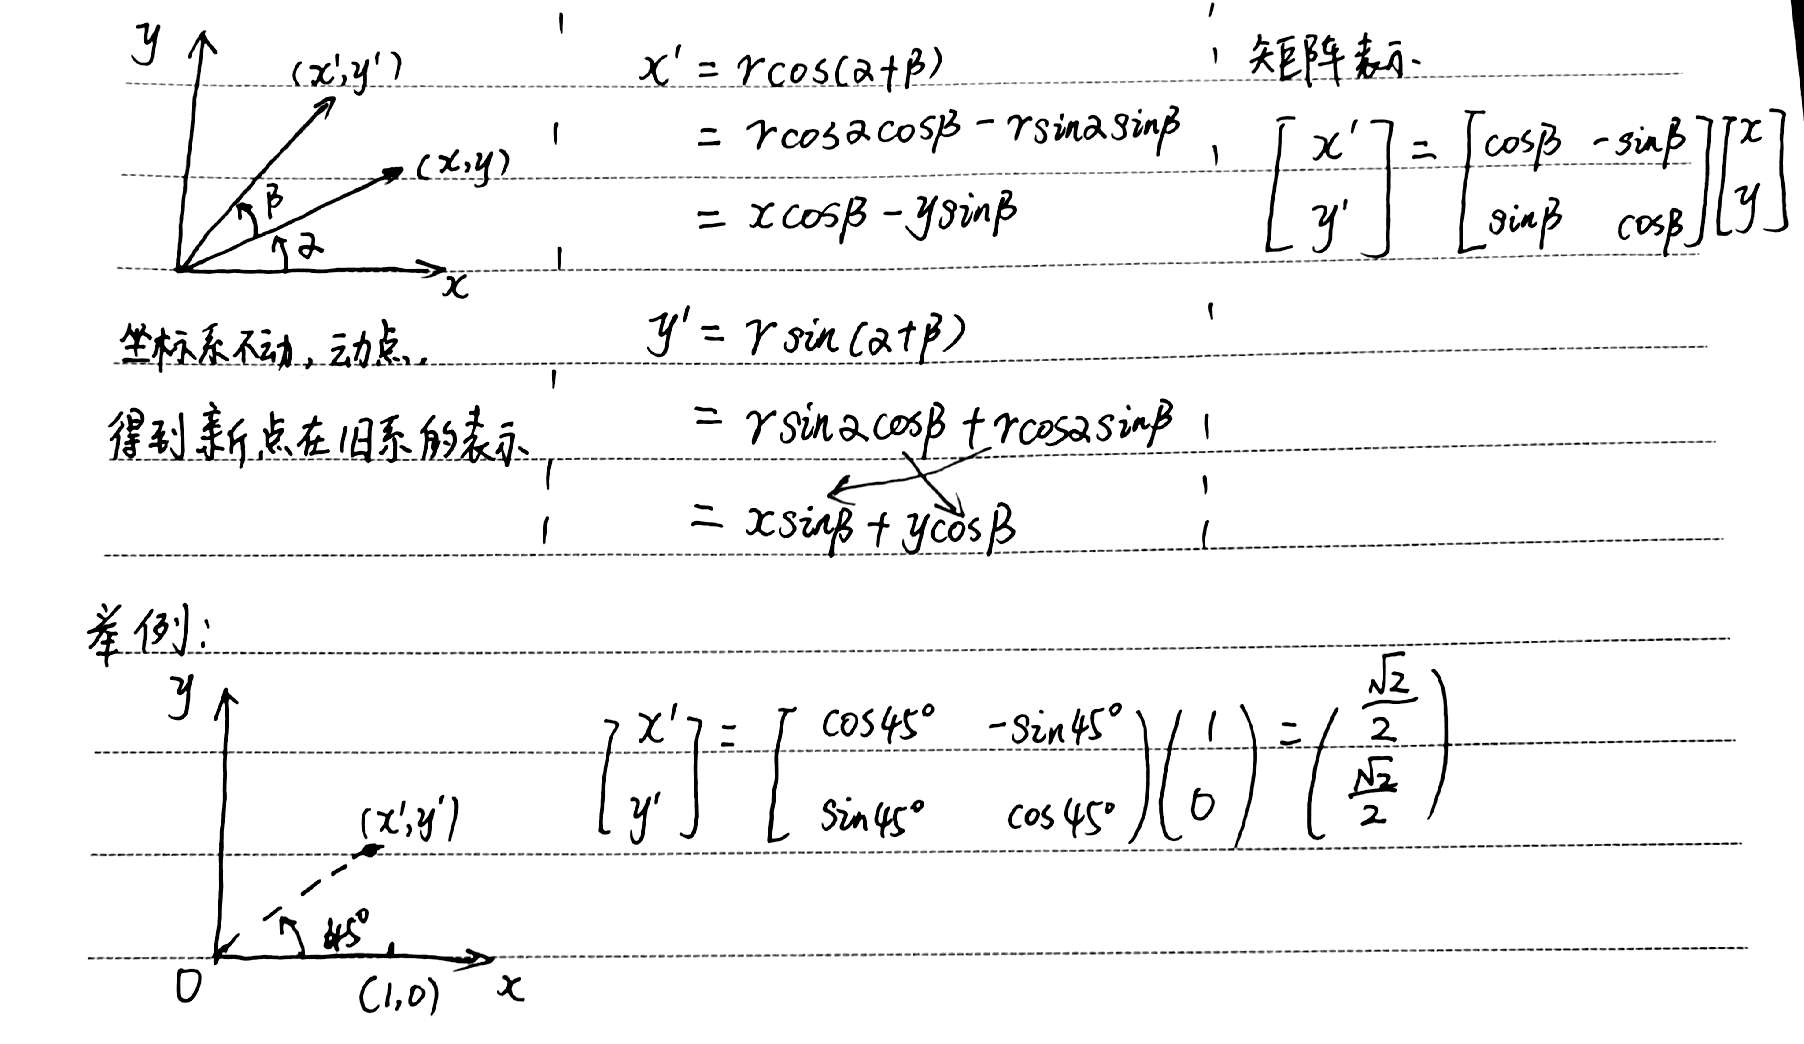 y
(x',y')
(x,y)
β
α
x
坐标系不动,动点.
得到新点在旧系的表示
x' = rcos(α+β)
= rcosαcosβ - rsinαsinβ
= xcosβ - ysinβ
y' = rsin(α+β)
= rsinαcosβ + rcosαsinβ
= xsinβ + ycosβ
矩阵表示
[x' y'] = [cosβ -sinβ sinβ cosβ][x y]
举例:
y
(x',y')
45°
O
(1,0)
x
[x' y'] = [cos45° -sin45° sin45° cos45°)(1 0) = (√2/2 √2/2)